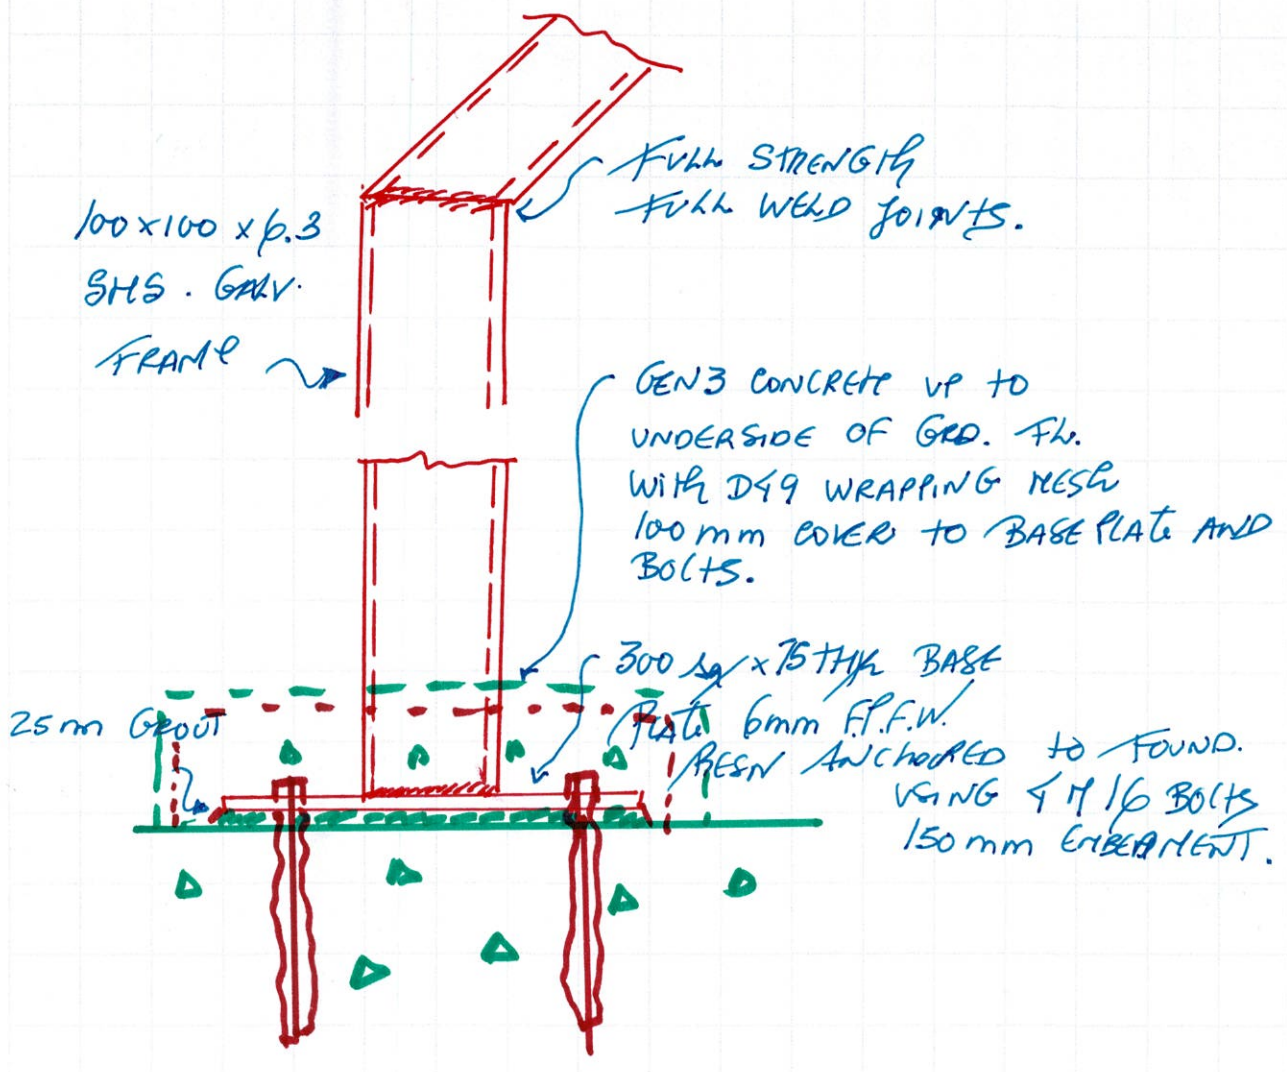 FULL STRENGTH
FULL WELD JOINTS.
100x100 x 6.3
SHS. GALV.
FRAME
GEN3 CONCRETE UP TO
UNDERSIDE OF GRD. FL.
WITH D49 WRAPPING MESH
100mm COVER TO BASE PLATE AND
BOLTS.
300 sq x 15 THK BASE
PLATE 6mm F.P.F.W.
25mm GROUT
RESN ANCHORED TO FOUND.
USING 4 M16 BOLTS
150mm EMBEDMENT.